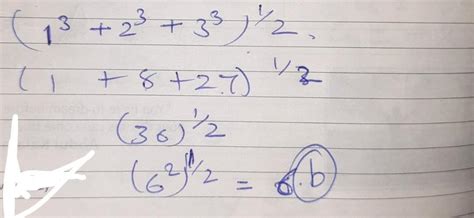 (1³ + 2³ + 3³)^1/2.
(1 + 8 + 27)^1/2
(36)^1/2
(6²)^1/2 = 6 b